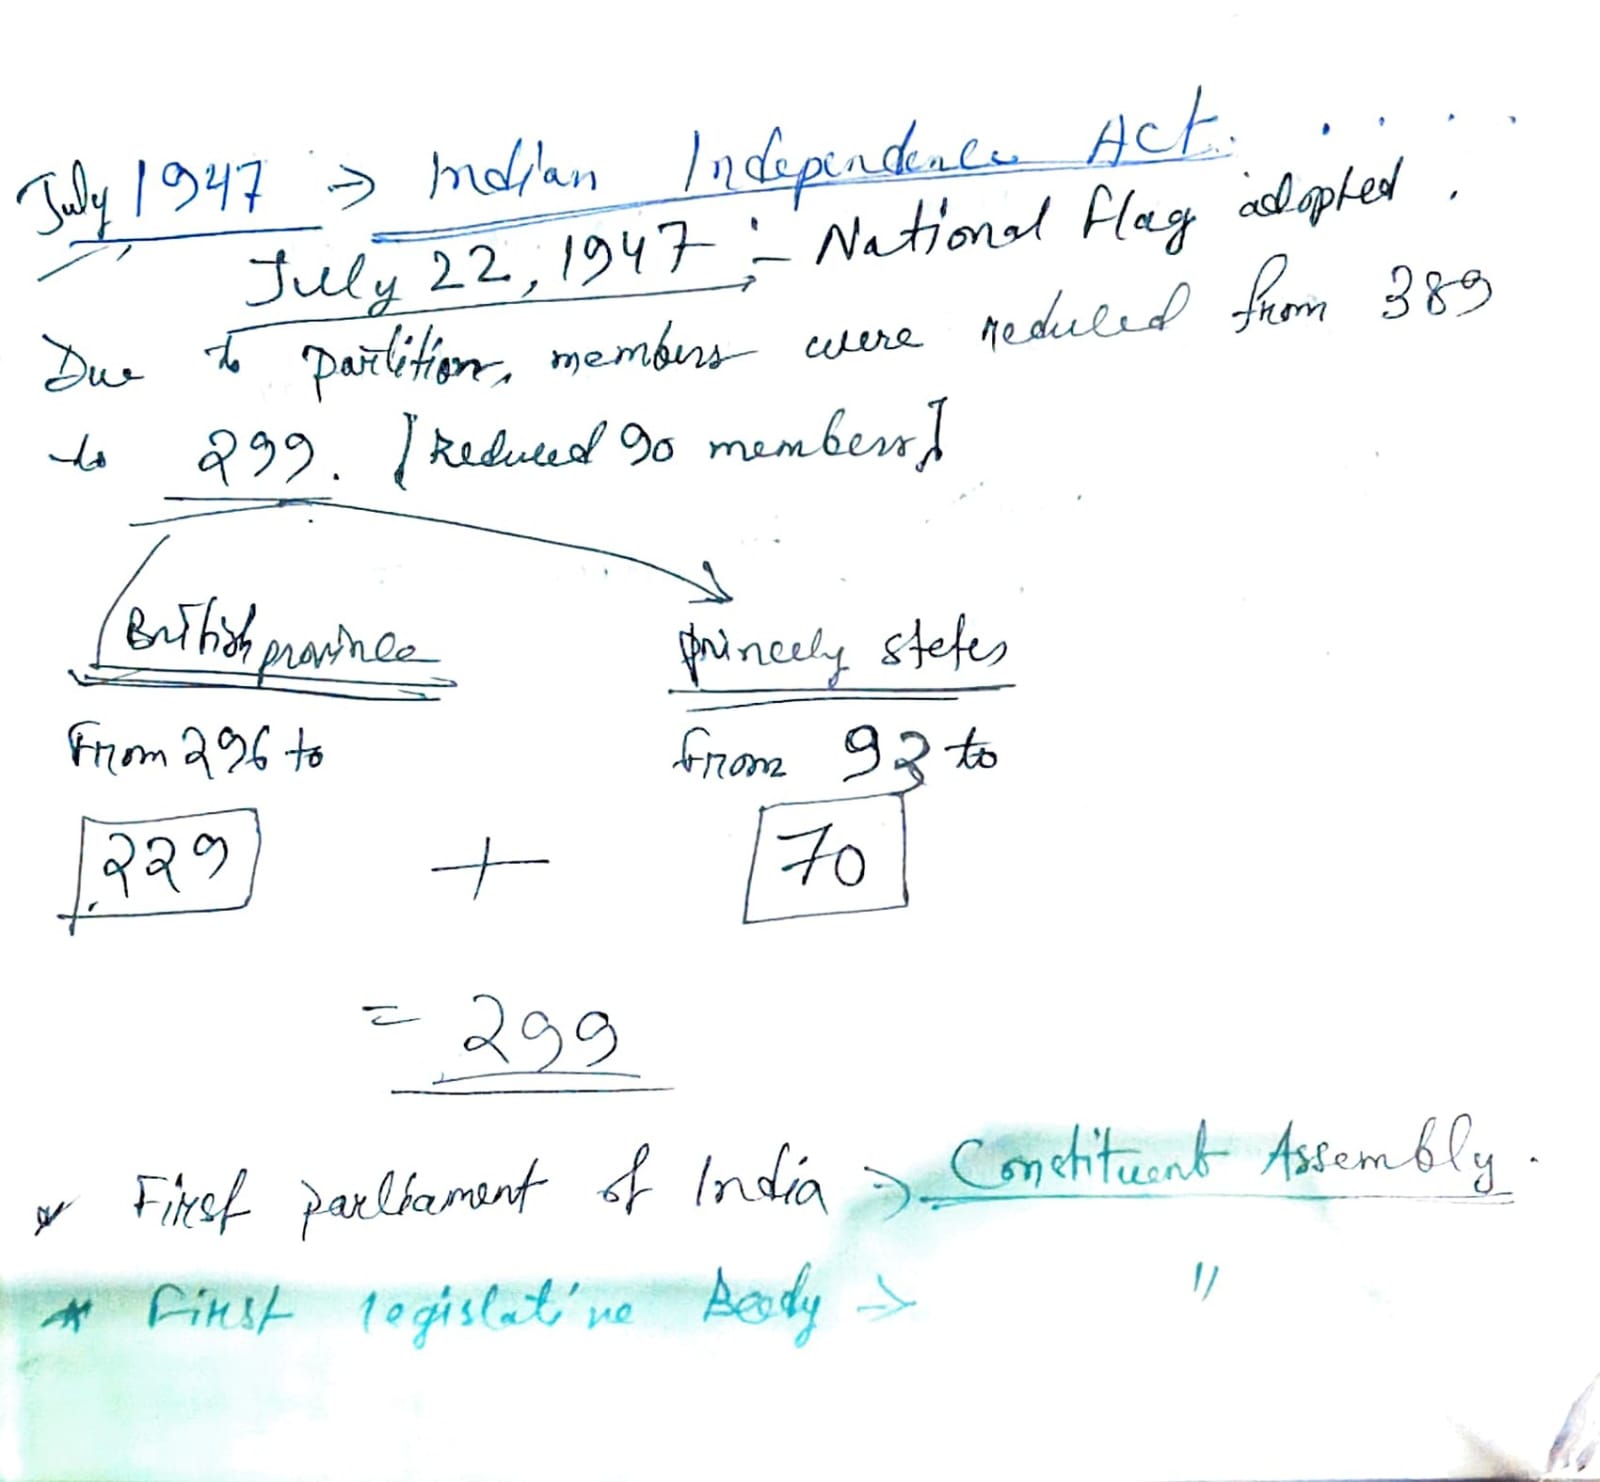 July 1947 → Indian Independence Act.
July 22, 1947 :- National flag adopted.
Due to partition, members were reduced from 389
to 299. [Reduced 90 members]
British province princely states
From 296 to from 93 to
229 + 70
= 299
* First parliament of India → Constituent Assembly.
* First legislative Body → "